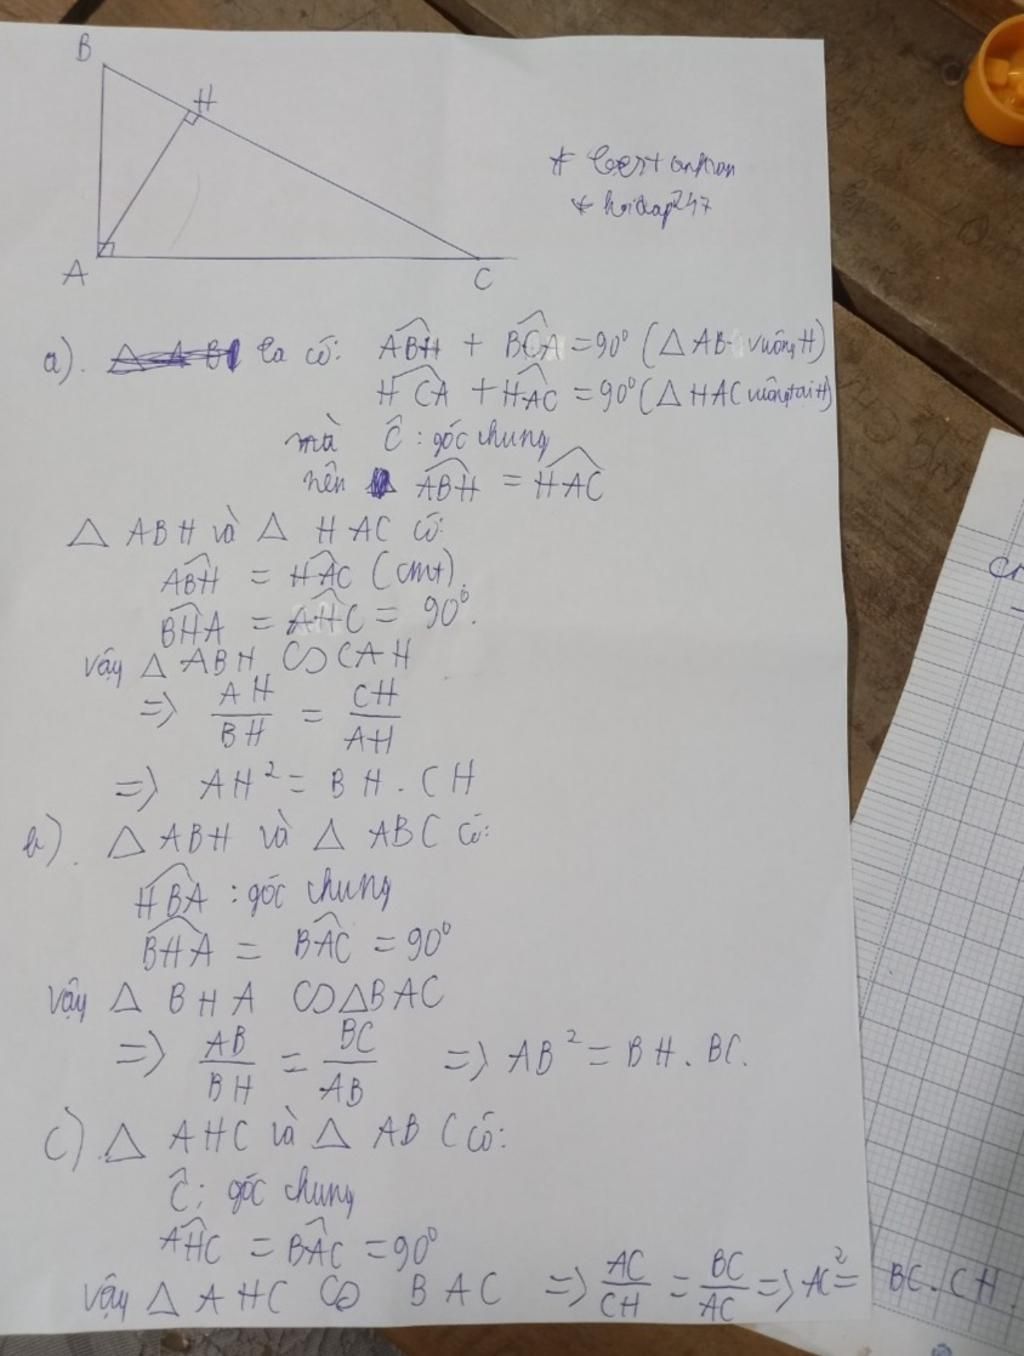 B
H
A
C
* hoidap247
a). Ta có: ABH + BCA = 90° (△ AB vuông H)
HCA + HAC = 90° (△ HAC vuông tại H)
mà Ĉ : góc chung
nên ABH = HAC
△ ABH và △ HAC có:
ABH = HAC (cmt).
BHA = AHC = 90°.
vậy △ ABH ∽ CAH
=> AH/BH = CH/AH
=> AH² = BH . CH
b). △ ABH và △ ABC có:
HBA : góc chung
BHA = BAC = 90°
vậy △ BHA ∽ △BAC
=> AB/BH = BC/AB => AB² = BH . BC.
c) △ AHC và △ ABC có:
Ĉ : góc chung
AHC = BAC = 90°
vậy △ AHC ∽ BAC => AC/CH = BC/AC => AC² = BC . CH